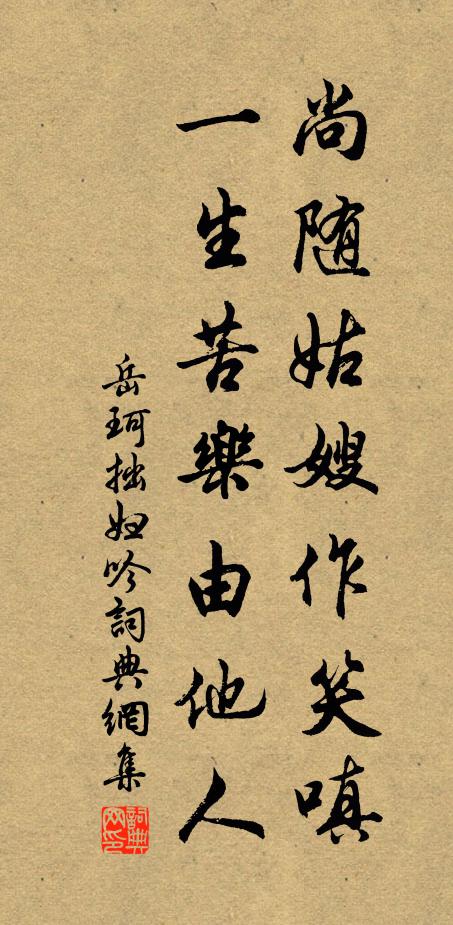 尚随姑嫂作笑嗔
一生苦樂由他人
岳珂拙妇吟詞典網集
詞典網印